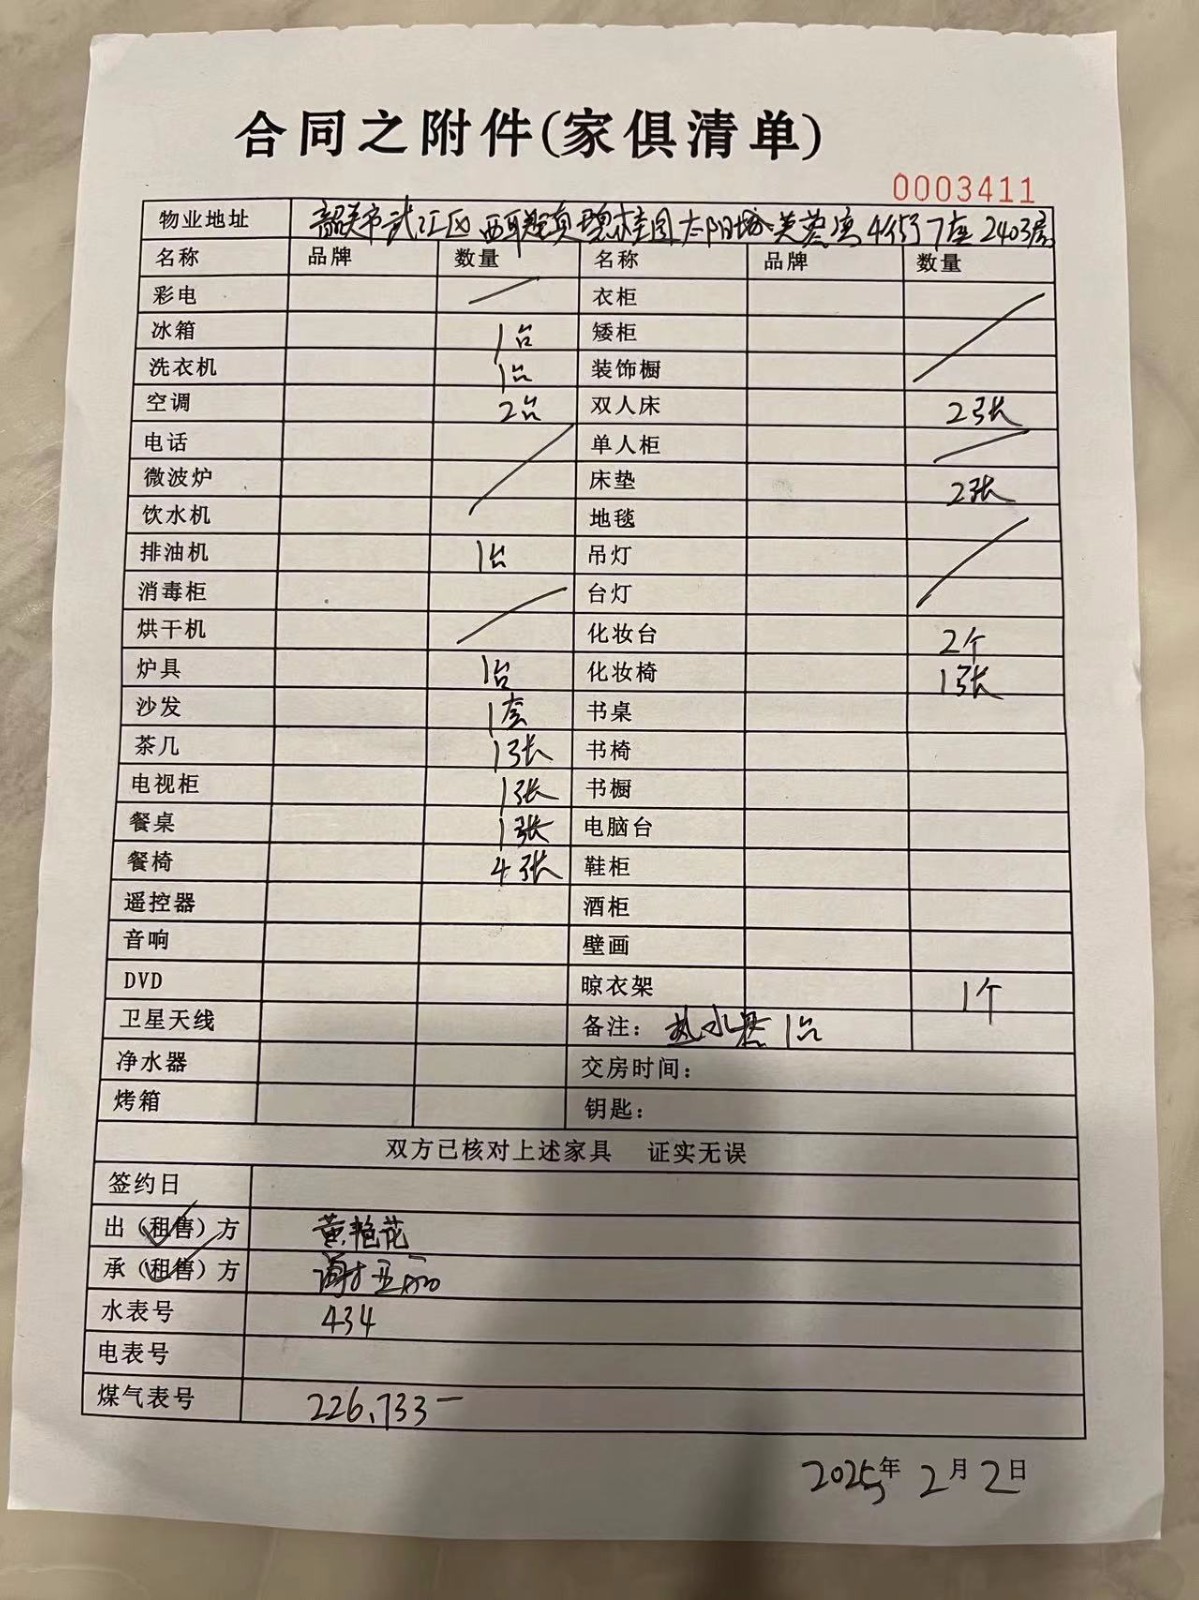 合同之附件(家俱清单)
0003411
物业地址 韶关市武江区西联镇碧桂园太阳城芙蓉湾4街7座2403房
名称 品牌 数量 名称 品牌 数量
彩电 衣柜
冰箱 1台 矮柜
洗衣机 1台 装饰橱
空调 2台 双人床 2张
电话 单人柜
微波炉 床垫 2张
饮水机 地毯
排油机 1台 吊灯
消毒柜 台灯
烘干机 化妆台 2个
炉具 1台 化妆椅 1张
沙发 1套 书桌
茶几 1张 书椅
电视柜 1张 书橱
餐桌 1张 电脑台
餐椅 4张 鞋柜
遥控器 酒柜
音响 壁画
DVD 晾衣架 1个
卫星天线 备注：热水器1台
净水器 交房时间：
烤箱 钥匙：
双方已核对上述家具 证实无误
签约日
出（租售）方 黄艳花
承（租售）方 谢亚丽
水表号 434
电表号
煤气表号 226.733
2025年2月2日